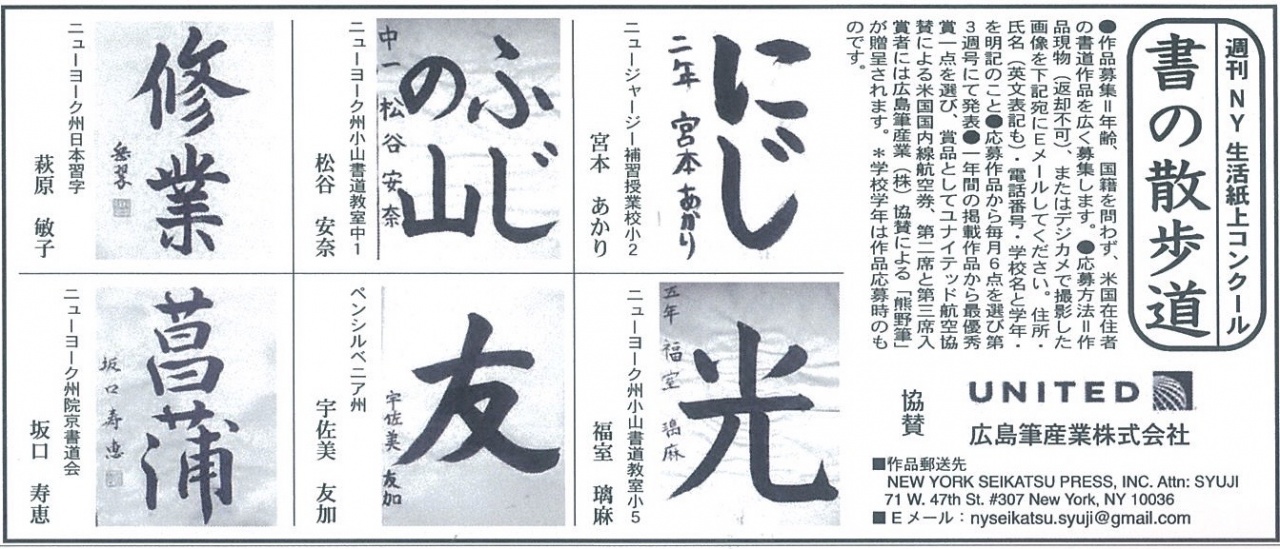 週刊NY生活紙上コンクール
書の散歩道
●作品募集＝年齢、国籍を問わず、米国在住者
の書道作品を広く募集します。●応募方法＝作
品現物（返却不可）、またはデジカメで撮影した
画像を下記宛にEメールしてください。住所・
氏名（英文表記も）・電話番号・学校名と学年・
を明記のこと●応募作品から毎月6点を選び第
3週号にて発表●一年間の掲載作品から最優秀
賞一点を選び、賞品としてユナイテッド航空協
賛による米国国内線航空券、第二席と第三席入
賞者には広島筆産業（株）協賛による「熊野筆」
が贈呈されます。＊学校学年は作品応募時のも
のです。
協賛
UNITED
広島筆産業株式会社
■作品郵送先
NEW YORK SEIKATSU PRESS, INC. Attn: SYUJI
71 W. 47th St. #307 New York, NY 10036
■Eメール：nyseikatsu.syuji@gmail.com
にじ
二年 宮本あかり
ニュージャージー補習授業校小2
宮本 あかり
ふじ
の山
中一 松谷安奈
ニューヨーク州小山書道教室中1
松谷 安奈
修業
ニューヨーク州日本習字
萩原 敏子
光
五年 福室璃麻
ニューヨーク州小山書道教室小5
福室 璃麻
友
宇佐美 友加
ペンシルベニア州
宇佐美 友加
菖蒲
坂口寿恵
ニューヨーク州院京書道会
坂口 寿恵